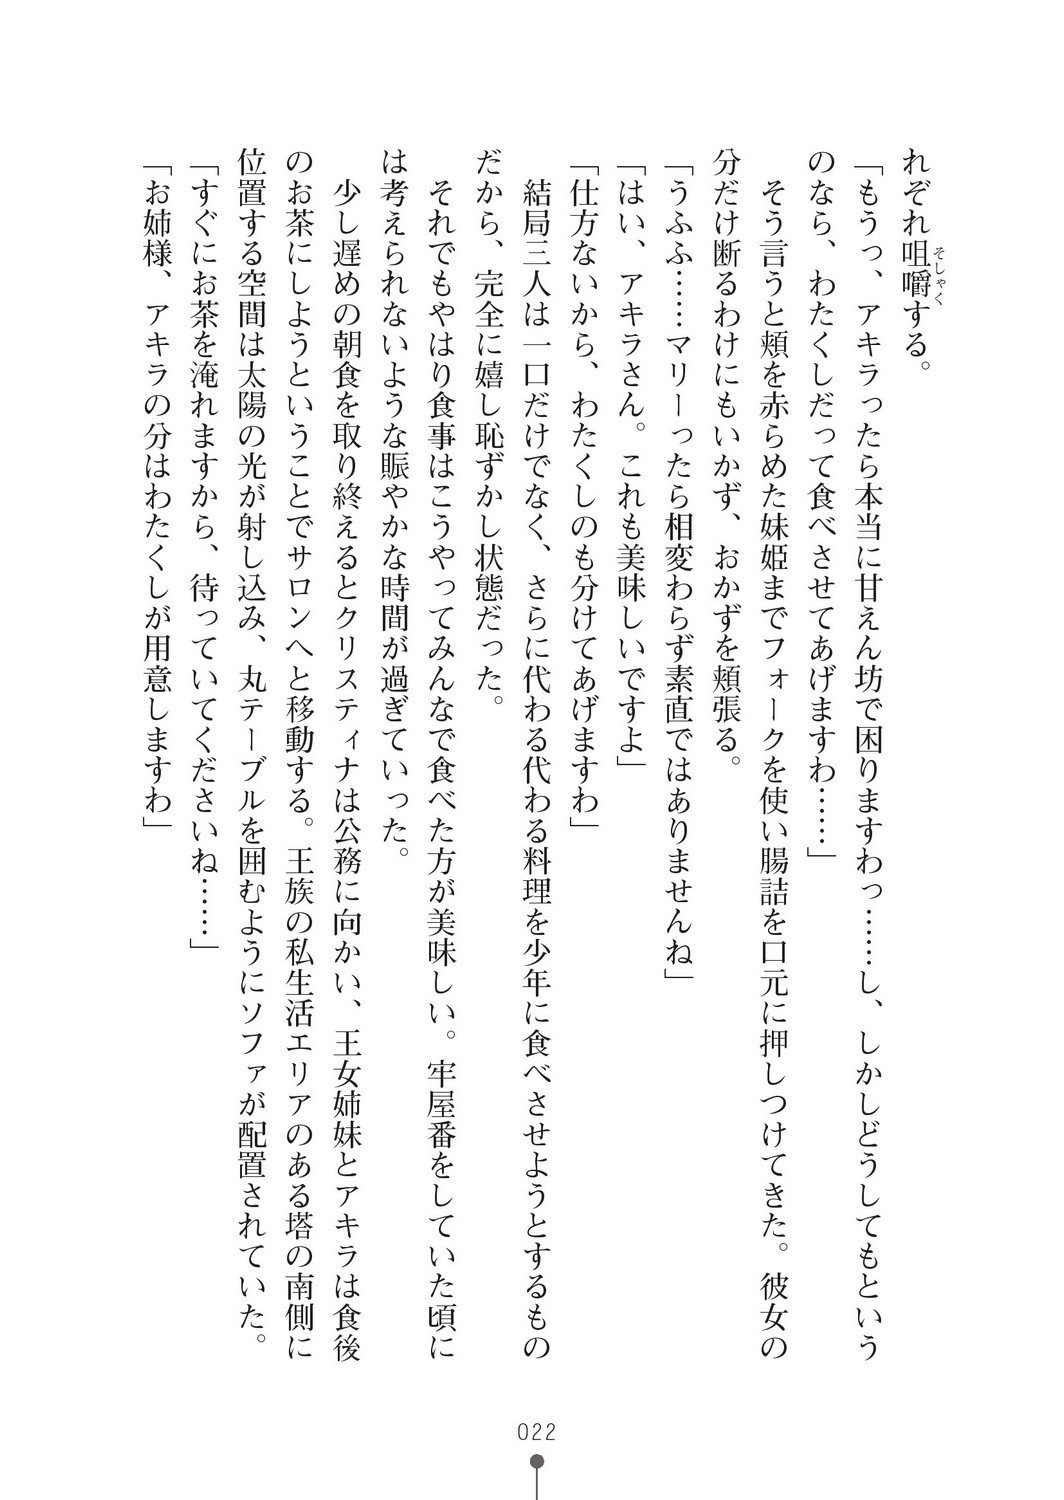 れぞれ咀嚼する。
そしゃく
「もうっ、アキラったら本当に甘えん坊で困りますわっ……し、しかしどうしてもという
のなら、わたくしだって食べさせてあげますわ……」
　そう言うと頬を赤らめた妹姫までフォークを使い腸詰を口元に押しつけてきた。彼女の
分だけ断るわけにもいかず、おかずを頬張る。
「うふふ……マリーったら相変わらず素直ではありませんね」
「はい、アキラさん。これも美味しいですよ」
「仕方ないから、わたくしのも分けてあげますわ」
　結局三人は一口だけでなく、さらに代わる代わる料理を少年に食べさせようとするもの
だから、完全に嬉し恥ずかし状態だった。
　それでもやはり食事はこうやってみんなで食べた方が美味しい。牢屋番をしていた頃に
は考えられないような賑やかな時間が過ぎていった。
　少し遅めの朝食を取り終えるとクリスティナは公務に向かい、王女姉妹とアキラは食後
のお茶にしようということでサロンへと移動する。王族の私生活エリアのある塔の南側に
位置する空間は太陽の光が射し込み、丸テーブルを囲むようにソファが配置されていた。
「すぐにお茶を淹れますから、待っていてくださいね……」
「お姉様、アキラの分はわたくしが用意しますわ」
022